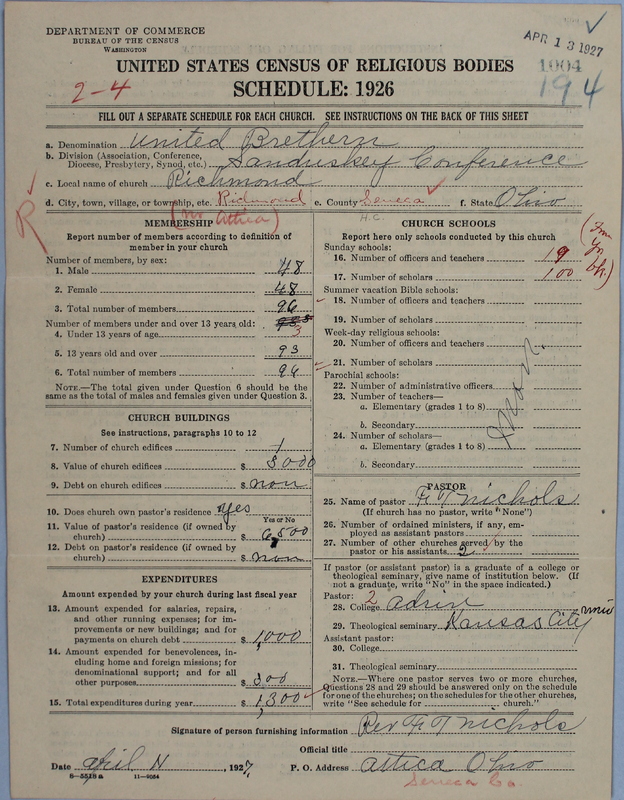 DEPARTMENT OF COMMERCE
BUREAU OF THE CENSUS
WASHINGTON
APR 13 1927
UNITED STATES CENSUS OF RELIGIOUS BODIES
1004
2-4
SCHEDULE: 1926
194
FILL OUT A SEPARATE SCHEDULE FOR EACH CHURCH. SEE INSTRUCTIONS ON THE BACK OF THIS SHEET
a. Denomination United Brethern
b. Division (Association, Conference, Diocese, Presbytery, Synod, etc.) Sanduskey Conference
c. Local name of church Richmond
d. City, town, village, or township, etc. Richmond e. County Seneca f. State Ohio
R
(nr Attica)
H.C.
MEMBERSHIP
Report number of members according to definition of member in your church
Number of members, by sex:
1. Male 48
2. Female 48
3. Total number of members 96
Number of members under and over 13 years old:
4. Under 13 years of age 3
5. 13 years old and over 93
6. Total number of members 96
NOTE.—The total given under Question 6 should be the same as the total of males and females given under Question 3.
CHURCH BUILDINGS
See instructions, paragraphs 10 to 12
7. Number of church edifices 1
8. Value of church edifices $ 8000
9. Debt on church edifices $ non
10. Does church own pastor's residence yes
Yes or No
11. Value of pastor's residence (if owned by church) $ 6,500
12. Debt on pastor's residence (if owned by church) $ non
EXPENDITURES
Amount expended by your church during last fiscal year
13. Amount expended for salaries, repairs, and other running expenses; for improvements or new buildings; and for payments on church debt $ 1,000
14. Amount expended for benevolences, including home and foreign missions; for denominational support; and for all other purposes $ 300
15. Total expenditures during year $ 1,300
CHURCH SCHOOLS
Report here only schools conducted by this church
Sunday schools:
16. Number of officers and teachers 19
17. Number of scholars 100
(Fm Yr. bk.)
Summer vacation Bible schools:
18. Number of officers and teachers
19. Number of scholars
Week-day religious schools:
20. Number of officers and teachers
21. Number of scholars
Parochial schools:
22. Number of administrative officers
23. Number of teachers—
a. Elementary (grades 1 to 8)
b. Secondary
24. Number of scholars—
a. Elementary (grades 1 to 8)
b. Secondary
PASTOR
25. Name of pastor F. T. Nichols
(If church has no pastor, write "None")
26. Number of ordained ministers, if any, employed as assistant pastors
27. Number of other churches served by the pastor or his assistants 2
If pastor (or assistant pastor) is a graduate of a college or theological seminary, give name of institution below. (If not a graduate, write "No" in the space indicated.)
Pastor: 2
28. College Adrin
29. Theological seminary Kansas City univ
Assistant pastor:
30. College
31. Theological seminary
NOTE.—Where one pastor serves two or more churches, Questions 28 and 29 should be answered only on the schedule for one of the churches; on the schedules for the other churches, write "See schedule for church."
Signature of person furnishing information Rev F T Nichols
Official title
Date April 11, 1927 P. O. Address Attica Ohio
8-5518a 11-9054
Seneca Co.